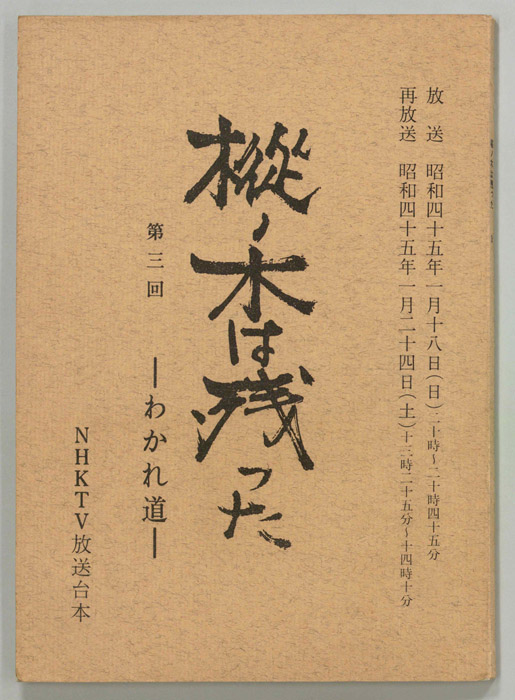 放送 昭和四十五年一月十八日(日)二十時~二十時四十五分
再放送 昭和四十五年一月二十四日(土)十三時二十五分~十四時十分
樅ノ木は残った
第三回
―わかれ道―
NHKTV放送台本